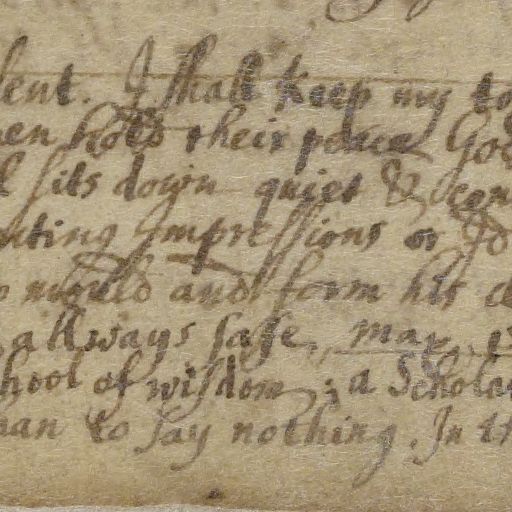 lent. I shall keep my to
men hold their peace God
l sits down quiet & con
nting Impressions or Id
o mould and form his
allways safe, max.
hool of wisdom; a Schola
man to say nothing. In th